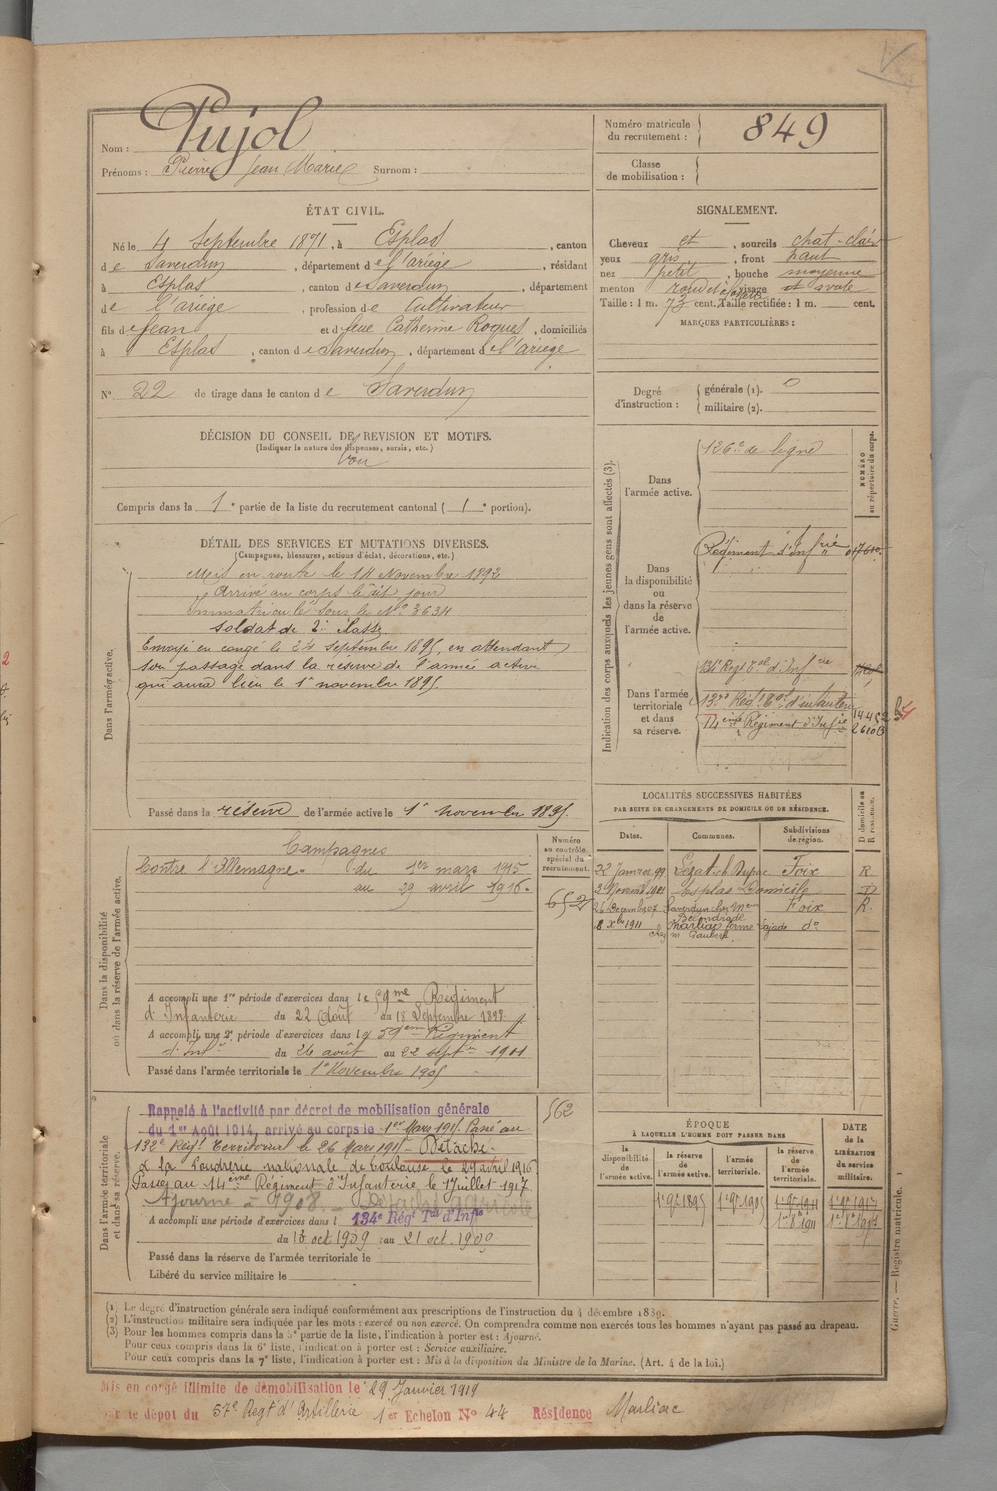 Nom : Pujol
Prénoms : Pierre Jean Marie Surnom :
Numéro matricule du recrutement : 849
Classe de mobilisation :
ÉTAT CIVIL.
Né le 4 Septembre 1871, à Esplas, canton
de Saverdun, département de l'ariège, résidant
à Esplas, canton de Saverdun, département
de l'ariège, profession de Cultivateur
fils de Jean et de feue Catherine Roques, domiciliés
à Esplas, canton de Saverdun, département de l'ariège
N° 22 de tirage dans le canton de Saverdun
SIGNALEMENT.
Cheveux et, sourcils chat-clair
yeux gris, front haut
nez petit, bouche moyenne
menton rond et à fossette visage et ovale
Taille : 1 m. 73 cent. Taille rectifiée : 1 m. cent.
MARQUES PARTICULIÈRES :
Degré d'instruction : générale (1). 0
militaire (2).
DÉCISION DU CONSEIL DE REVISION ET MOTIFS.
(Indiquer la nature des dispenses, sursis, etc.)
Bon
Compris dans la 1e partie de la liste du recrutement cantonal (1e portion).
DÉTAIL DES SERVICES ET MUTATIONS DIVERSES.
(Campagnes, blessures, actions d'éclat, décorations, etc.)
Dans l'armée active.
Mis en route le 14 Novembre 1892
Arrivé au corps le dit jour
immatriculé sous le N° 3634
soldat de 2e classe
Envoyé en congé le 24 septembre 1895, en attendant
son passage dans la réserve de l'armée active
qui aura lieu le 1er novembre 1895.
Passé dans la réserve de l'armée active le 1er novembre 1895.
Indication des corps auxquels les jeunes gens sont affectés (3).
NUMÉRO au répertoire du corps.
Dans l'armée active.
126e de ligne
Dans la disponibilité ou dans la réserve de l'armée active.
Régiment d'Infrie
Dans l'armée territoriale et dans sa réserve.
Régt d'Infrie
Régt d'infanterie
14eme Régiment d'Infie
LOCALITÉS SUCCESSIVES HABITÉES
PAR SUITE DE CHANGEMENTS DE DOMICILE OU DE RÉSIDENCE.
Dates. Communes. Subdivisions de région. D domicile ou R résidence.
22 Janvier 99 Foix R
2 Novembre 1901 Esplas Domicile D
26 Decembre 07 Saverdun chez Mr Foix R.
8 Xbre 1911 Marliac ferme do
chez m. Gaubert
Dans la disponibilité ou dans la réserve de l'armée active.
Numéro au contrôle spécial du recrutement.
Campagnes
Contre l'Allemagne. du 1er mars 1915
au 29 avril 1916.
652
A accompli une 1re période d'exercices dans le 59me Régiment
d'Infanterie du 22 Août au 18 Septembre 1898.
A accompli une 2e période d'exercices dans le 59eme Régiment
d'Infie du 26 août au 22 septre 1901
Passé dans l'armée territoriale le 1er Novembre 1905
Dans l'armée territoriale et dans sa réserve.
562
Rappelé à l'activité par décret de mobilisation générale
du 1er Août 1914, arrivé au corps le 1er Mars 1915. Passé au
132e Régt Territorial le 26 Mars 1915. Détaché
à la Poudrerie nationale de Toulouse le 29 avril 1916
Passé au 14eme Régiment d'Infanterie le 1 Juillet 1917
Ajourné - 1908. Détaché agricole
A accompli une période d'exercices dans l 134e Régt Tal d'Infie
du 13 oct 1909 au 21 oct. 1909
Passé dans la réserve de l'armée territoriale le
Libéré du service militaire le
ÉPOQUE
À LAQUELLE L'HOMME DOIT PASSER DANS
la disponibilité de l'armée active. la réserve de l'armée active. l'armée territoriale. la réserve de l'armée territoriale. DATE de la LIBÉRATION du service militaire.
1er 9bre 1895 1er 9bre 1905 1er 9bre 1911 1er 9bre 1917
Guerre. — Registre matricule. 1
(1) Le degré d'instruction générale sera indiqué conformément aux prescriptions de l'instruction du 4 décembre 1889.
(2) L'instruction militaire sera indiquée par les mots : exercé ou non exercé. On comprendra comme non exercés tous les hommes n'ayant pas passé au drapeau.
(3) Pour les hommes compris dans la 5e partie de la liste, l'indication à porter est : Ajourné.
Pour ceux compris dans la 6e liste, l'indication à porter est : Service auxiliaire.
Pour ceux compris dans la 7e liste, l'indication à porter est : Mis à la disposition du Ministre de la Marine. (Art. 4 de la loi.)
Mis en congé illimité de démobilisation le 29 Janvier 1919
par le dépot du 57e Regt d'Artillerie 1er Echelon N° 44 Résidence Marliac